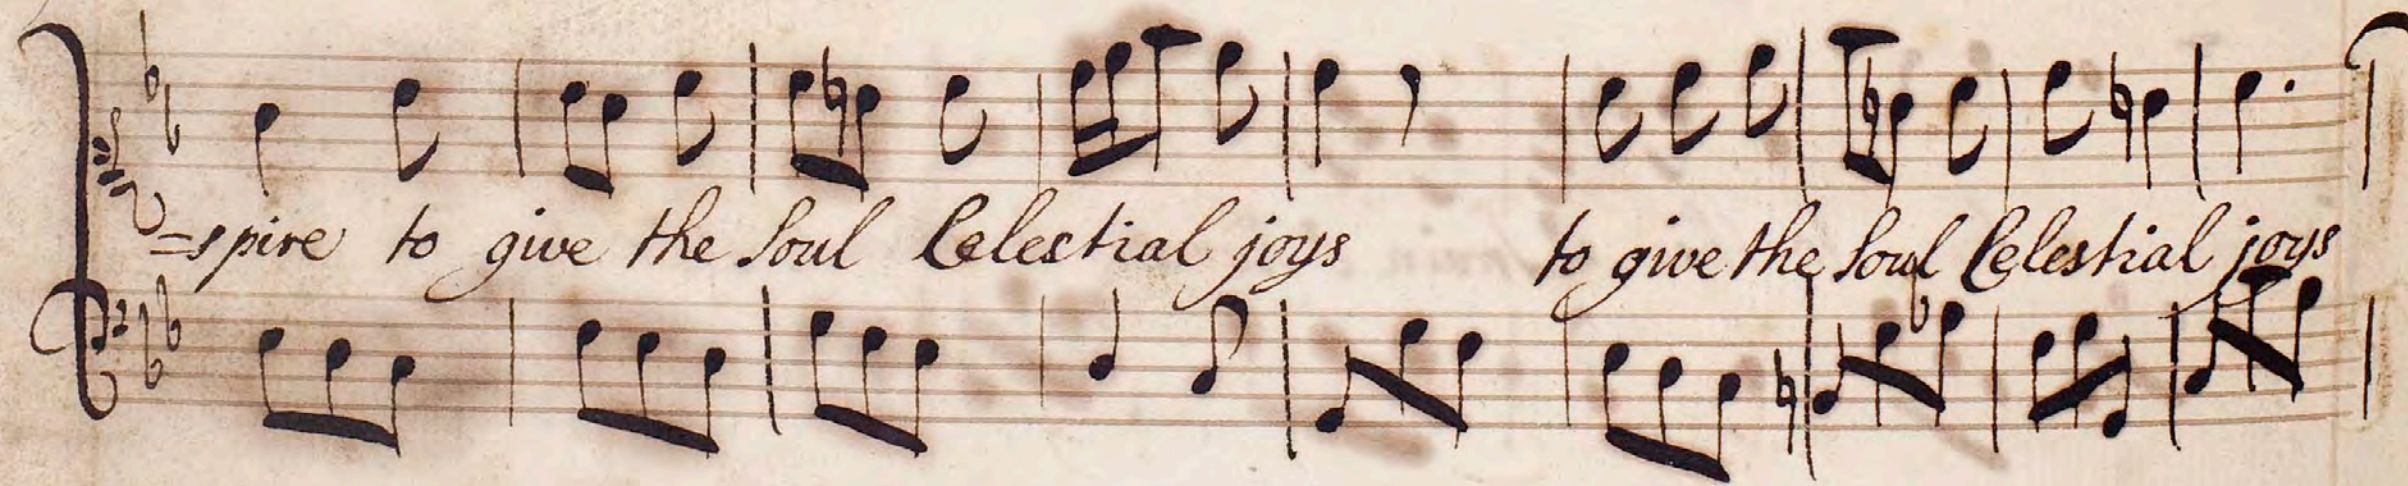 =spire to give the Soul Celestial joys to give the Soul Celestial joys